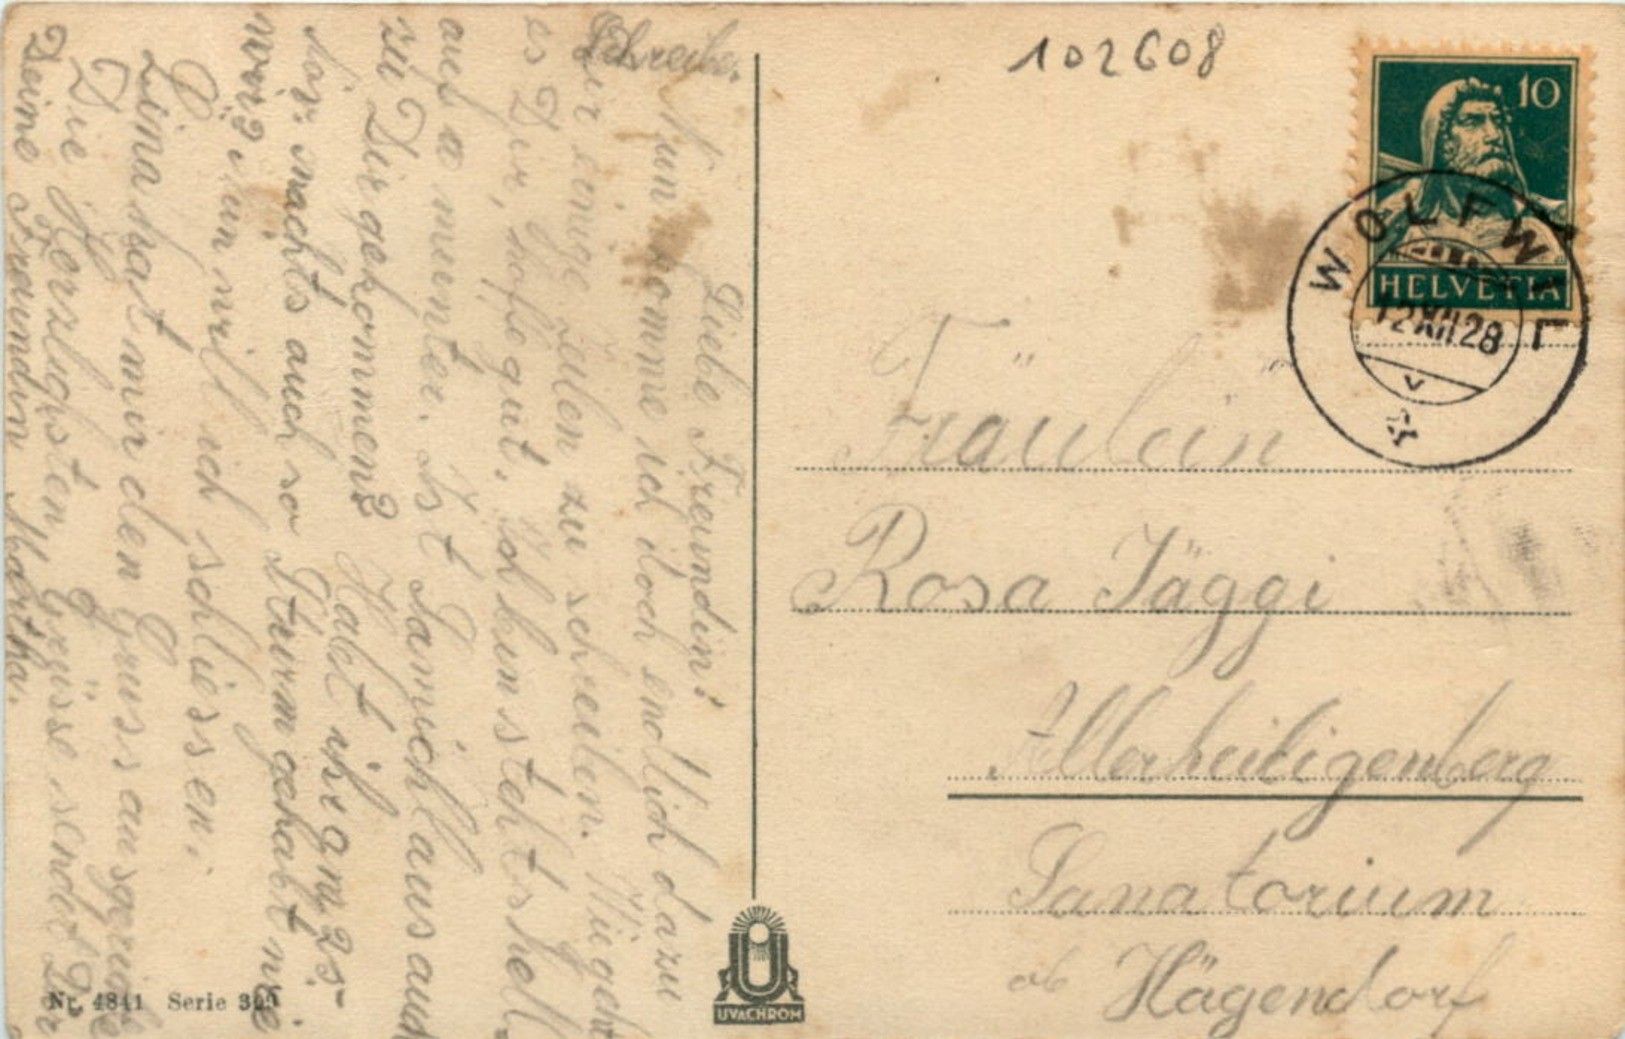 102608
10
HELVETIA
WOLFWIL
12.XII.28
Fräulein
Rosa Jäggi
Allerheiligenberg
Sanatorium
ob Hägendorf
Liebe Freundin!
Nun komme ich doch endlich dazu
Dir einige Zeilen zu schreiben. Wie geht
es Dir, hoffe gut, ich bin stehts hell-
auf u munter. Ist Samichlaus auch
zu Dir gekommen? Habt ihr am 25-
Nov. nachts auch so Sturm gehabt wie
wir? Nun will ich schliessen.
Lina hat mir den Gruss ausgerichtet
Die Herzlichsten Grüsse sendet Dir
Deine Freundin Martha.
Schreibe.
Nr. 4841 Serie 309
UVACHROM